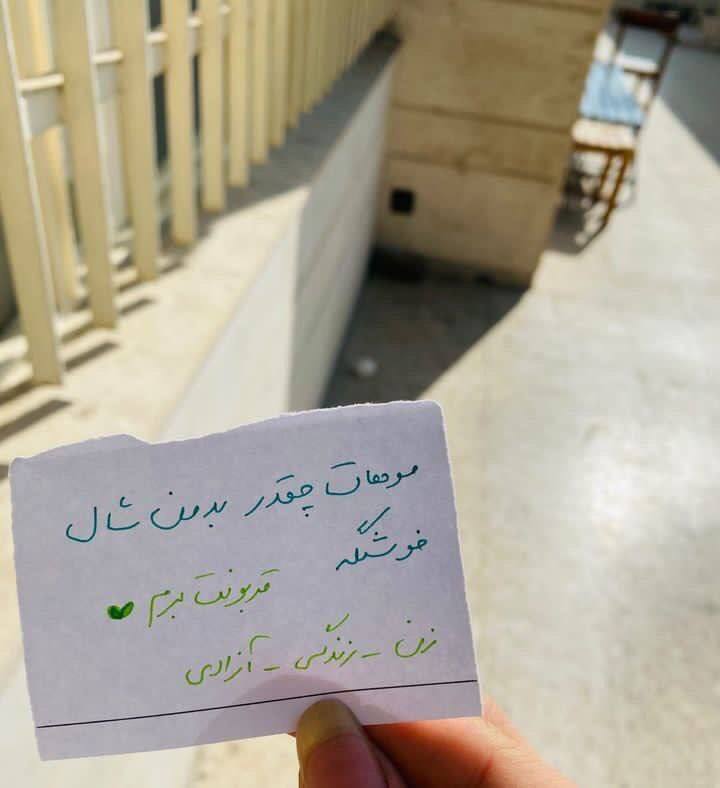 موهات چقدر بدون شال
خوشگله
قربونت برم
زن - زندگی - آزادی